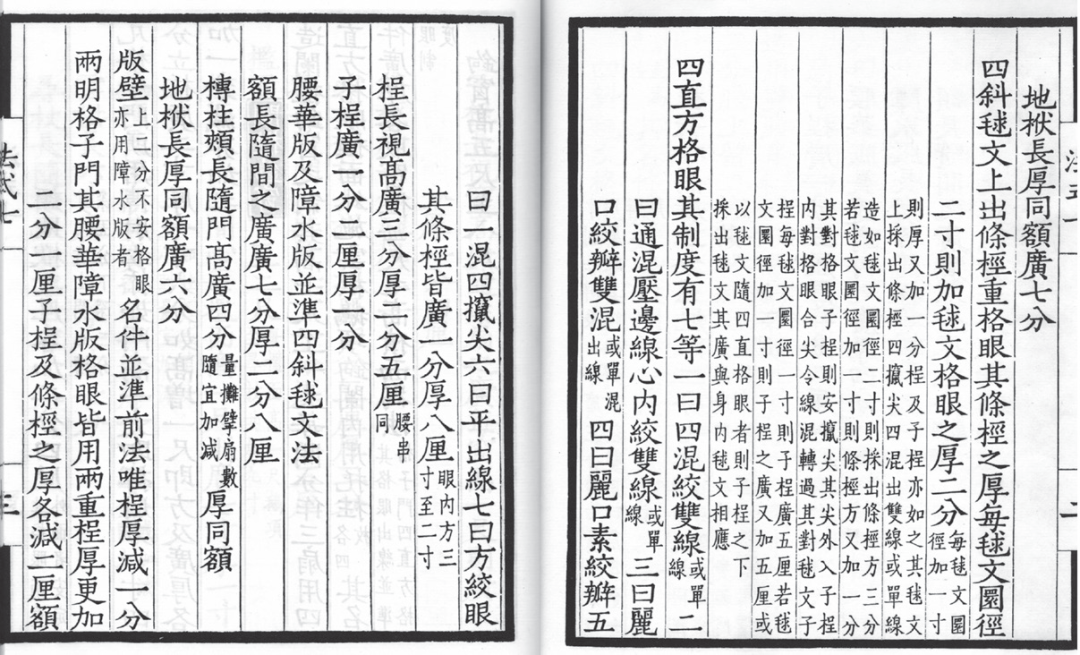 地栿長厚同額廣七分
四斜毬文上出條桱重格眼其條桱之厚每毬文圜徑
二寸則加毬文格眼之厚二分每毬文圜徑加一寸
則厚又加一分桯及子桯亦如之其毬文
上採出條桱四攛尖四混出雙線或單線
造如毬文圜徑二寸則採出條桱方三分
若毬文圜徑加一寸則條桱方又加一分
其對格眼子桯則安攛尖其尖外入子桯
内對格眼合尖令線混轉過其對毬文子
桯每毬文圜徑一寸則子桯廣五厘若毬
文圜徑加一寸則子桯之廣又加五厘或
以毬文隨四直格眼者則子桯之下
採出毬文其廣與身内毬文相應
四直方格眼其制度有七等一曰四混絞雙線或單線二
曰通混壓邊線心内絞雙線或單線三曰麗
口絞瓣雙混或單混出線四曰麗口素絞瓣五
曰一混四攛尖六曰平出線七曰方絞眼
其條桱皆廣一分厚八厘眼内方三寸至二寸
桯長視高廣三分厚二分五厘腰串同
子桯廣一分二厘厚一分
腰華版及障水版並準四斜毬文法
額長隨間之廣廣七分厚二分八厘
槫柱頰長隨門高廣四分量攤擘扇數隨宜加减厚同額
地栿長厚同額廣六分
版壁上二分不安格眼亦用障水版者名件並準前法唯桯厚減一分
兩明格子門其腰華障水版格眼皆用兩重桯厚更加
二分一厘子桯及條桱之厚各減一厘額
法式七